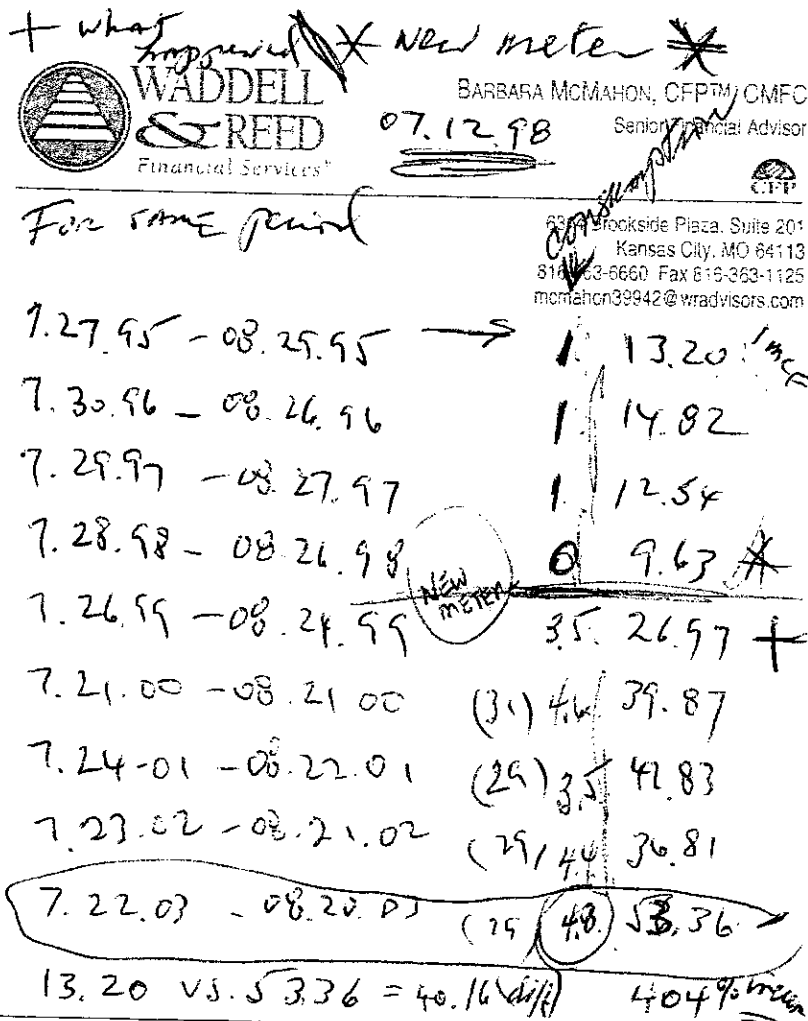 + what happened * New meter *
WADDELL & REED
Financial Services
BARBARA MCMAHON, CFP™, CMFC
Senior Financial Advisor
07.12.98
CFP
consumption
For same period
Brookside Plaza, Suite 201
Kansas City, MO 64113
Fax 816-363-1125
mcmahon39942@wradvisors.com
7.27.95 - 08.25.95 → 1. 13.20
7.30.96 - 08.26.96 1. 14.82
7.29.97 - 08.27.97 1. 12.54
7.28.98 - 08.26.98 0 9.63 *
NEW METER
7.26.99 - 08.24.99 3.5. 26.97 +
7.21.00 - 08.21 00 (31) 4.6 39.87
7.24-01 - 08.22.01 (29) 3.5 42.83
7.23.02 - 08.21.02 (29) 4.4 36.81
7.22.03 - 08.20.03 (29 4.8. 53.36
13.20 vs. 53.36 = 40.16 diff 404%